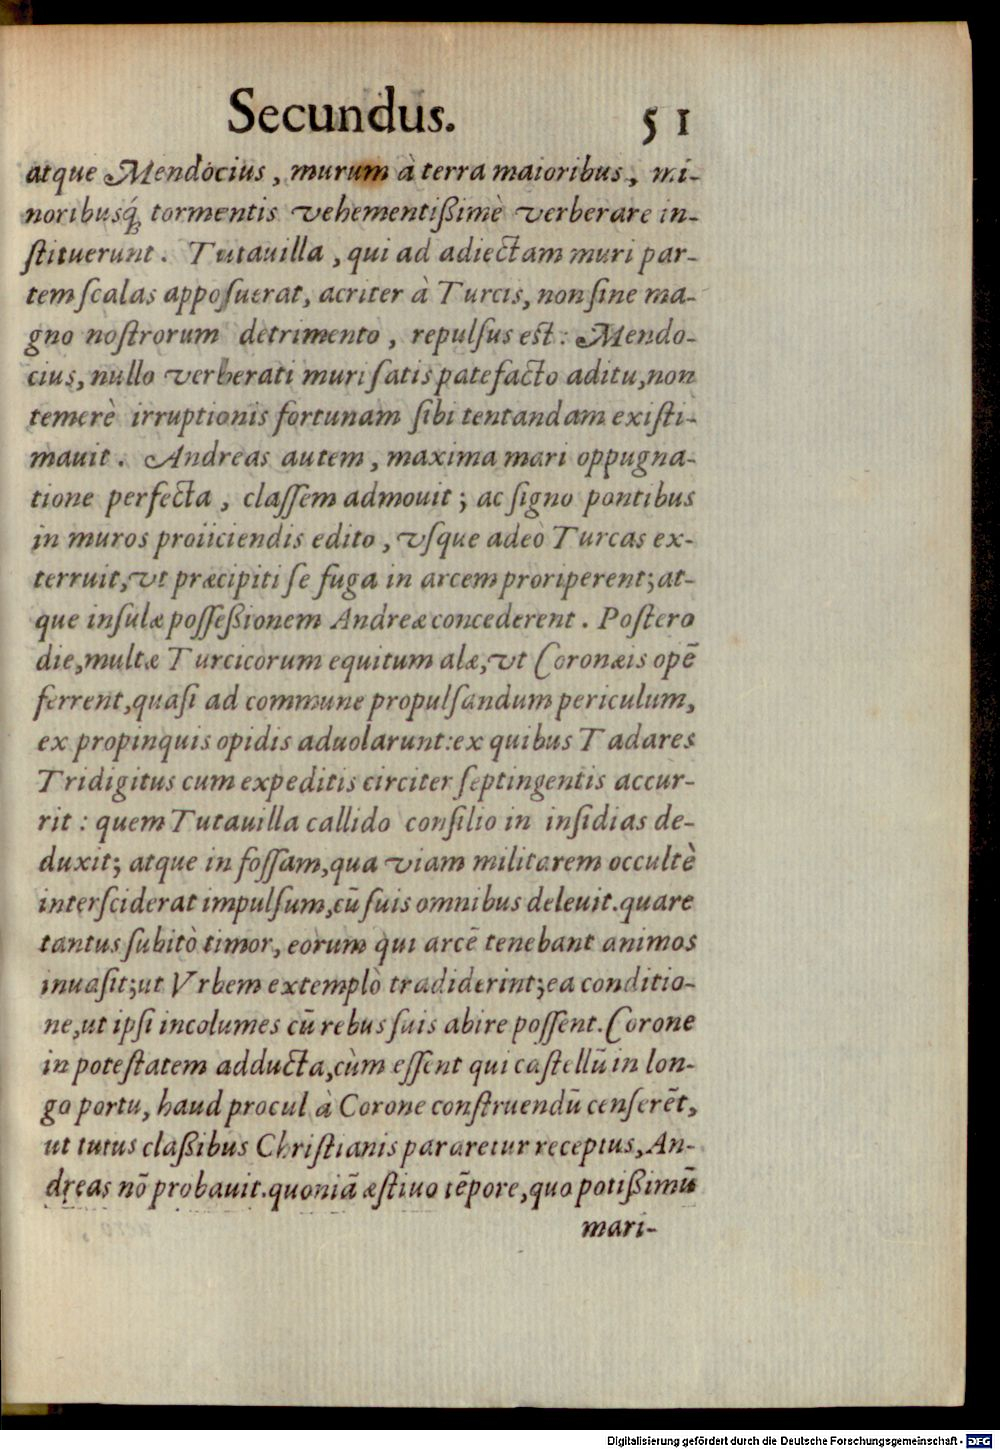 Secundus. 51
atque Mendocius, murum à terra maioribus, mi-
noribusq́; tormentis vehementißimè verberare in-
ſtituerunt. Tutauilla, qui ad adiectam muri par-
tem ſcalas appoſuerat, acriter à Turcis, non ſine ma-
gno noſtrorum detrimento, repulſus est: Mendo-
cius, nullo verberati muri ſatis patefacto aditu, non
temerè irruptionis fortunam ſibi tentandam exiſti-
mauit. Andreas autem, maxima mari oppugna-
tione perfecta, claſſem admouit; ac ſigno pontibus
in muros proiiciendis edito, vſque adeò Turcas ex-
terruit, vt præcipiti ſe fuga in arcem proriperent; at-
que inſulæ poſſeßionem Andreæ concederent. Poſtero
die, multæ Turcicorum equitum alæ, vt Coronæis opē
ferrent, quaſi ad commune propulſandum periculum,
ex propinquis opidis aduolarunt: ex quibus Tadares
Tridigitus cum expeditis circiter ſeptingentis accur-
rit: quem Tutauilla callido conſilio in inſidias de-
duxit; atque in foſſam, qua viam militarem occultè
interſciderat impulſum, cū ſuis omnibus deleuit. quare
tantus ſubitò timor, eorum qui arcē tenebant animos
inuaſit; ut Vrbem extemplò tradiderint; ea conditio-
ne, ut ipſi incolumes cū rebus ſuis abire poſſent. Corone
in poteſtatem adducta, cùm eſſent qui caſtellū in lon-
go portu, haud procul à Corone conſtruendū cenſerēt,
ut tutus claßibus Chriſtianis pararetur receptus, An-
dreas nō probauit. quoniā æſtiuo tēpore, quo potißimū
mari-
Digitalisierung gefördert durch die Deutsche Forschungsgemeinschaft - DFG